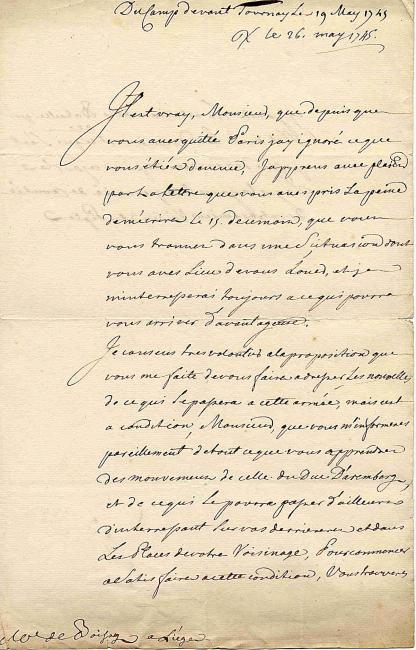 Du Camp devant Tournay Le 19 May 1745
R le 26. may 1745.
Il est vray, Monsieur, que depuis que
vous aves quitté Paris jay ignoré ce que
vous étiés devenu, Japprens avec plaisir
par La Lettre que vous aves pris La peine
de m'écrire le 15. de ce mois, que vous
vous trouvez dans une Situation dont
vous aves Lieu de vous Loüer, et je
m'interresserai toujours a ce qui pourra
vous arriver d'avantageux.
Je consens tres volontiers a la proposition que
vous me faite de vous faire adresser Les nouvelles
de ce qui se passera a cette armée, mais c'est
a condition, Monsieur, que vous m'informerés
pareillement de tout ce que vous apprendrés
des mouvemens de celle du Duc D'aremberg,
et de ce qui se pourra passer d'ailleurs
d'interressant sur vos derrieres et dans
Les Places de votre Voisinage, Pour commencer
a Satisfaire a cette condition, Vous trouverés
Mr. de a Liége